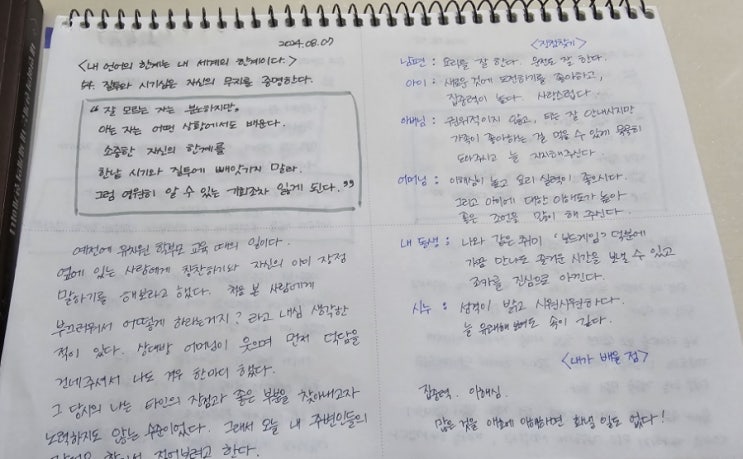 2024.08.07
<내 언어의 한계는 내 세계의 한계이다.>
질투와 시기심은 자신의 무지를 증명한다.
"잘 모르는 자는 분노하지만,
아는 자는 어떤 상황에서도 배운다.
소중한 자신의 한계를
한낱 시기와 질투에 빼앗기지 말라.
그럼 영원히 알 수 있는 기회조차 잃게 된다."
예전에 유치원 학부모 교육 때의 일이다.
옆에 있는 사람에게 칭찬하기와 자신의 아이 장점
말하기를 해보라고 했다. 처음 본 사람에게
부끄러워서 어떻게 하라는거지? 라고 내심 생각한
적이 있다. 상대방 어머님이 웃으며 먼저 덕담을
건네주셔서 나도 겨우 한마디 했다.
그 당시의 나는 타인의 장점과 좋은 부분을 찾아내고자
노력하지도 않는 수준이었다. 그래서 오늘 내 주변인들의
찾아서 적어보려고 한다.
<장점찾기>
남편 : 요리를 잘 한다. 운전도 잘 한다.
아이 : 새로운 것에 도전하기를 좋아하고,
집중력이 높다. 사랑스럽다.
아버님 : 권위적이지 않고, 티는 잘 안내시지만
가족이 좋아하는 걸 먹을 수 있게 묵묵히
도와주고 늘 지지해주신다.
어머님 : 이해심이 높고 요리 실력이 좋으시다.
그리고 아이에 대한 이해도가 높아
좋은 조언을 많이 해 주신다.
내 동생 : 나와 같은 취미 '보드게임' 덕분에
가끔 만나도 즐거운 시간을 보낼 수 있고
조카를 진심으로 아낀다.
시누 : 성격이 밝고 시원시원하다.
늘 유쾌해 보여도 속이 깊다.
<내가 배울 점>
집중력. 이해심.
많은 것을 이해하면 화낼 일도 없다!